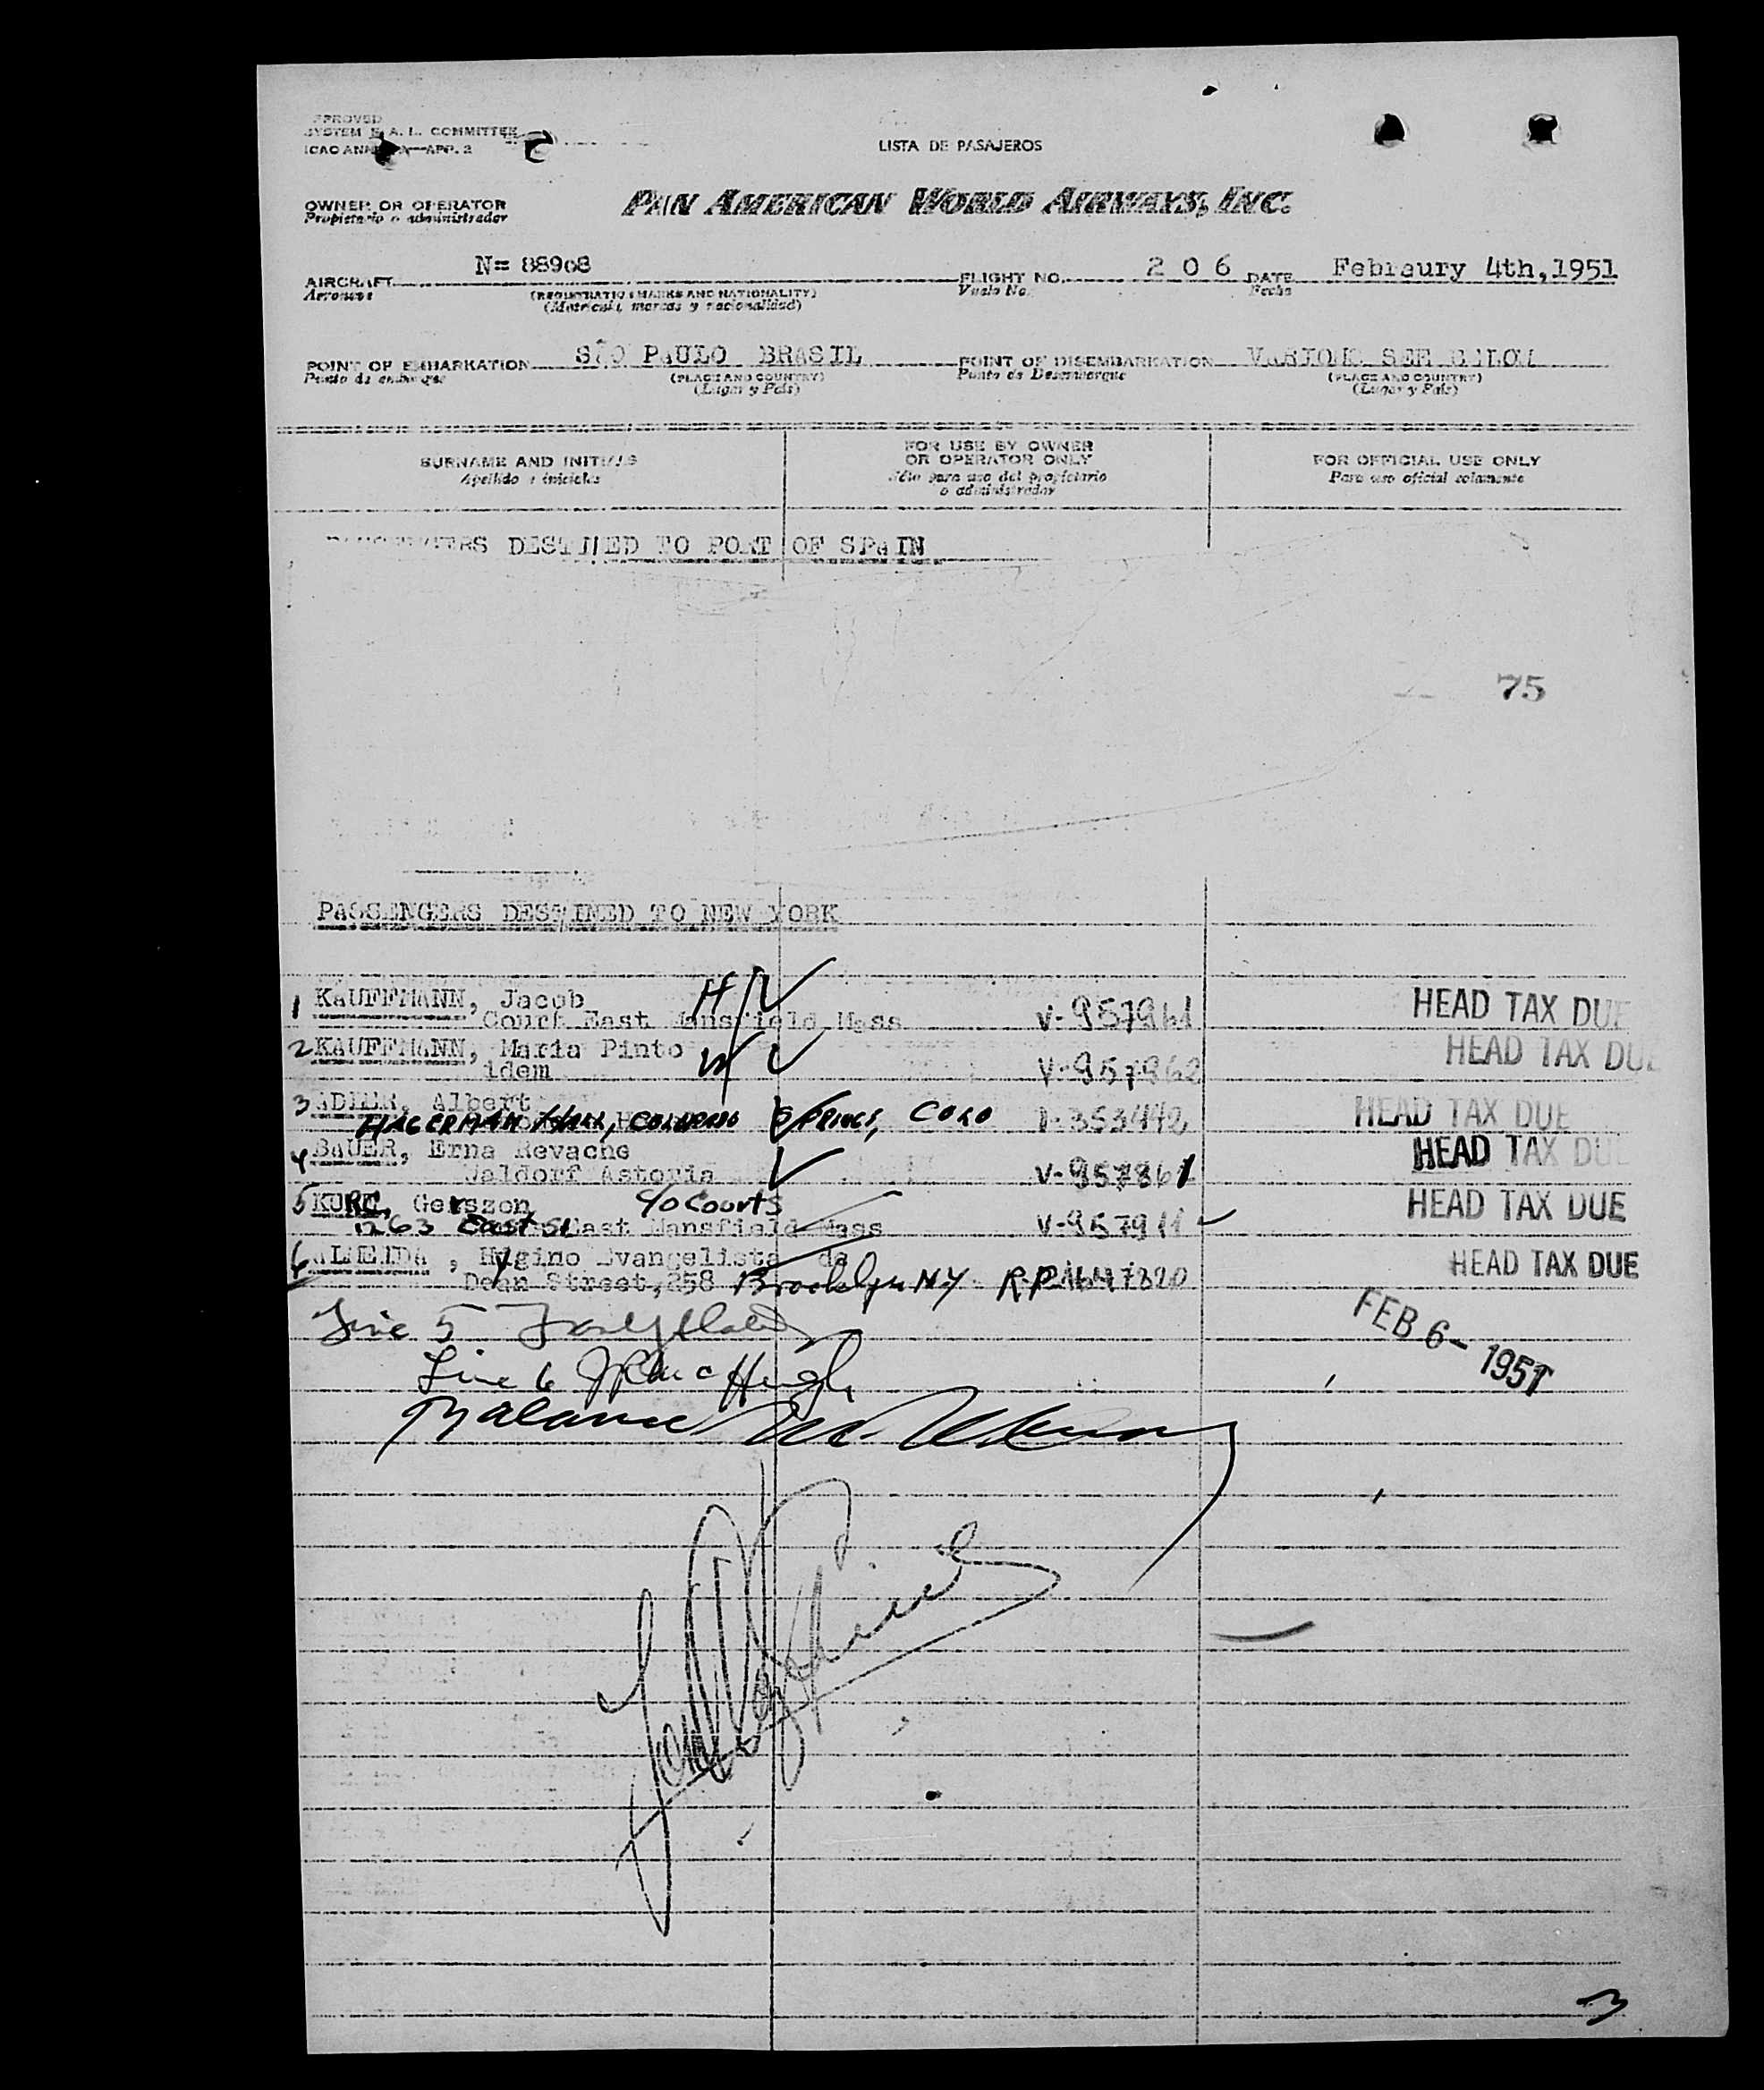 LISTA DE PASAJEROS
OWNER OR OPERATOR
Propietario o administrador
PAN AMERICAN WORLD AIRWAYS, INC.
AIRCRAFT N= 88908 FLIGHT NO. 2 0 6 DATE Febraury 4th, 1951
Aeronave (REGISTRATION MARKS AND NATIONALITY) Vuelo No. Fecha
(Matricula, marcas y nacionalidad)
POINT OF EMBARKATION SÃO PAULO BRASIL POINT OF DISEMBARKATION VARIOUS SEE BELOW
Punto de embarque (PLACE AND COUNTRY) Punto de Desembarque (PLACE AND COUNTRY)
(Lugar y Pais) (Lugar y Pais)
SURNAME AND INITIALS FOR USE BY OWNER OR OPERATOR ONLY FOR OFFICIAL USE ONLY
Apellido e iniciales Sólo para uso del propietario o administrador Para uso oficial solamente
PASSENGERS DESTINED TO PORT OF SPAIN
75
PASSENGERS DESTINED TO NEW YORK
1 KAUFFMANN, Jacob H HEAD TAX DUE
Court East Mansfield Mass
2 KAUFFMANN, Maria Pinto W HEAD TAX DUE
idem V-957962
3 ADLER, Albert HEAD TAX DUE
HAGERMAN HALL, COLORADO SPRINGS, COLO
4 BAUER, Erna Revache HEAD TAX DUE
Waldorf Astoria
5 KURC, Gerszon c/o Courts HEAD TAX DUE
1263 East St East Mansfield Mass V-957911
6 ALMEIDA, Hygino Evangelista de HEAD TAX DUE
Dean Street, 258 Brooklyn NY
Line 5 FEB 6- 1951
Line 6
Balance
3